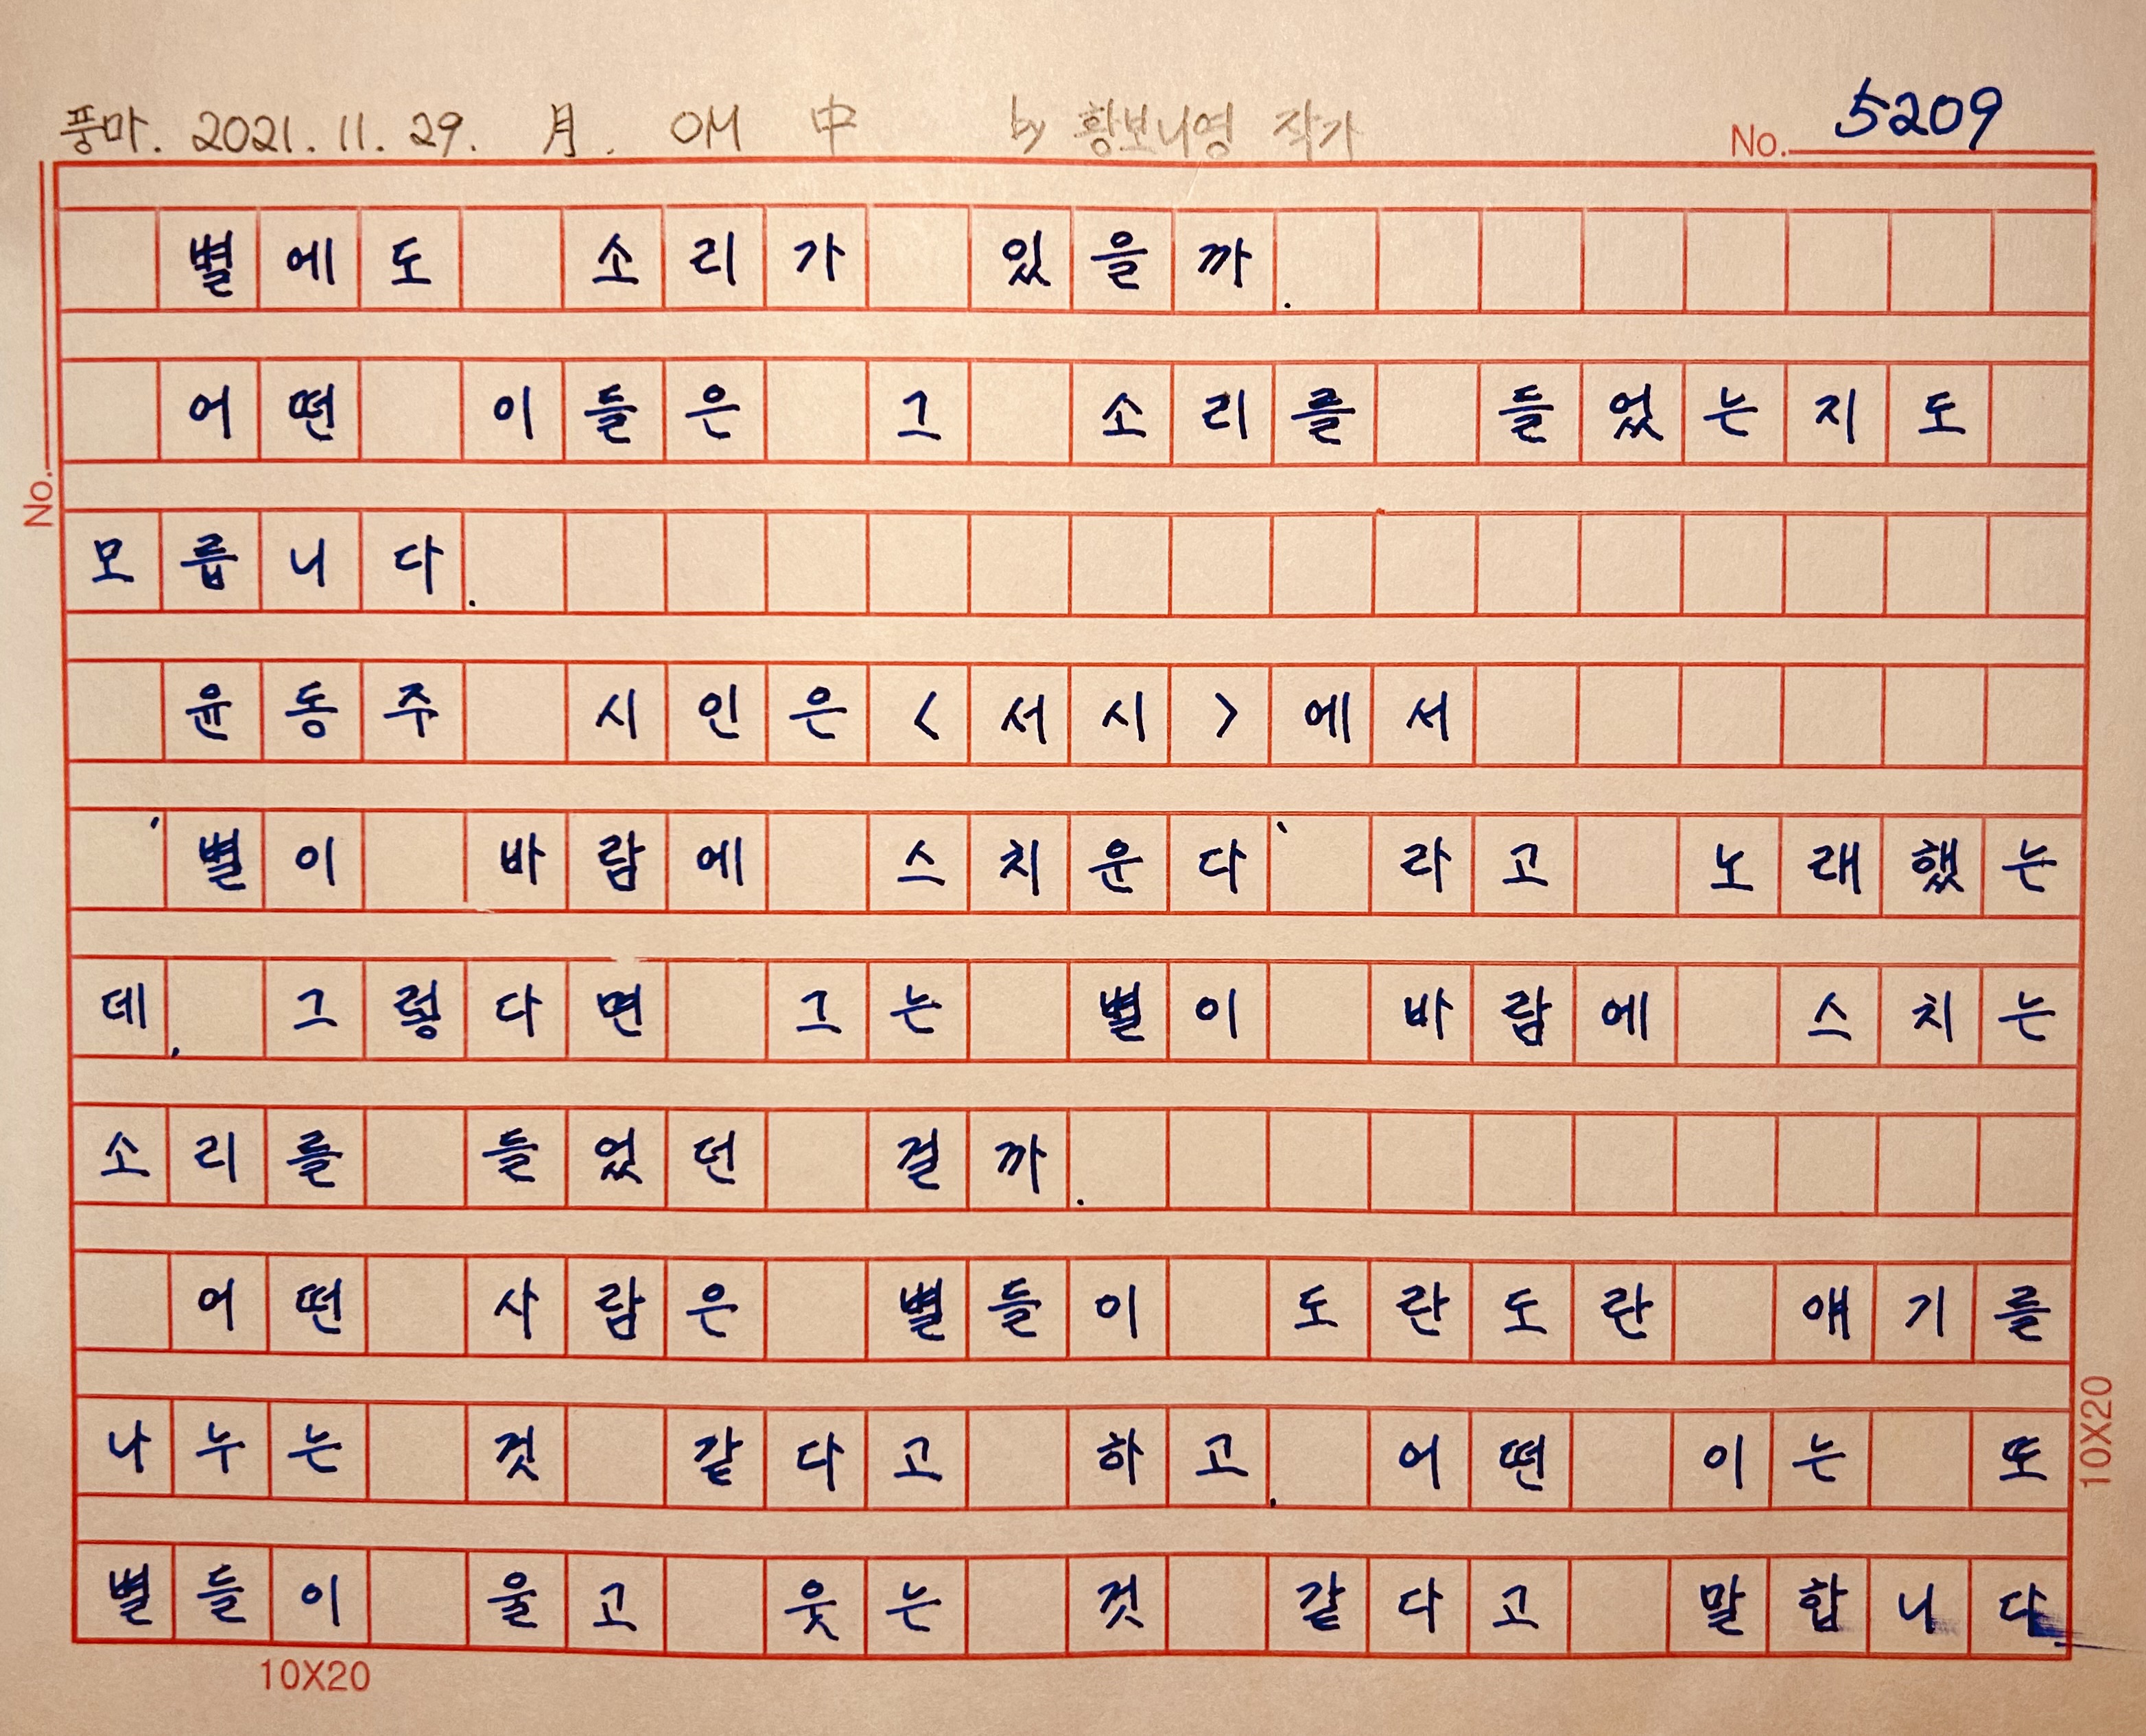 풍마. 2021. 11. 29. 月. OM 中 by 황보나영 작가
No. 5209
별에도 소리가 있을까.
어떤 이들은 그 소리를 들었는지도
No.
모릅니다.
윤동주 시인은 <서시>에서
'별이 바람에 스치운다' 라고 노래했는
데, 그렇다면 그는 별이 바람에 스치는
소리를 들었던 걸까.
어떤 사람은 별들이 도란도란 얘기를
나누는 것 같다고 하고, 어떤 이는 또
10X20
별들이 울고 웃는 것 같다고 말합니다
10X20